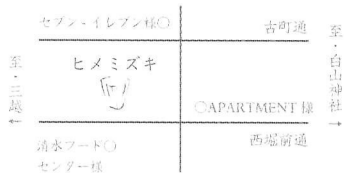 セブン - イレブン様○
古町通
至・三越
←
ヒメミズキ
至・白山神社
→
○APARTMENT 様
清水フード○
センター様
西堀前通